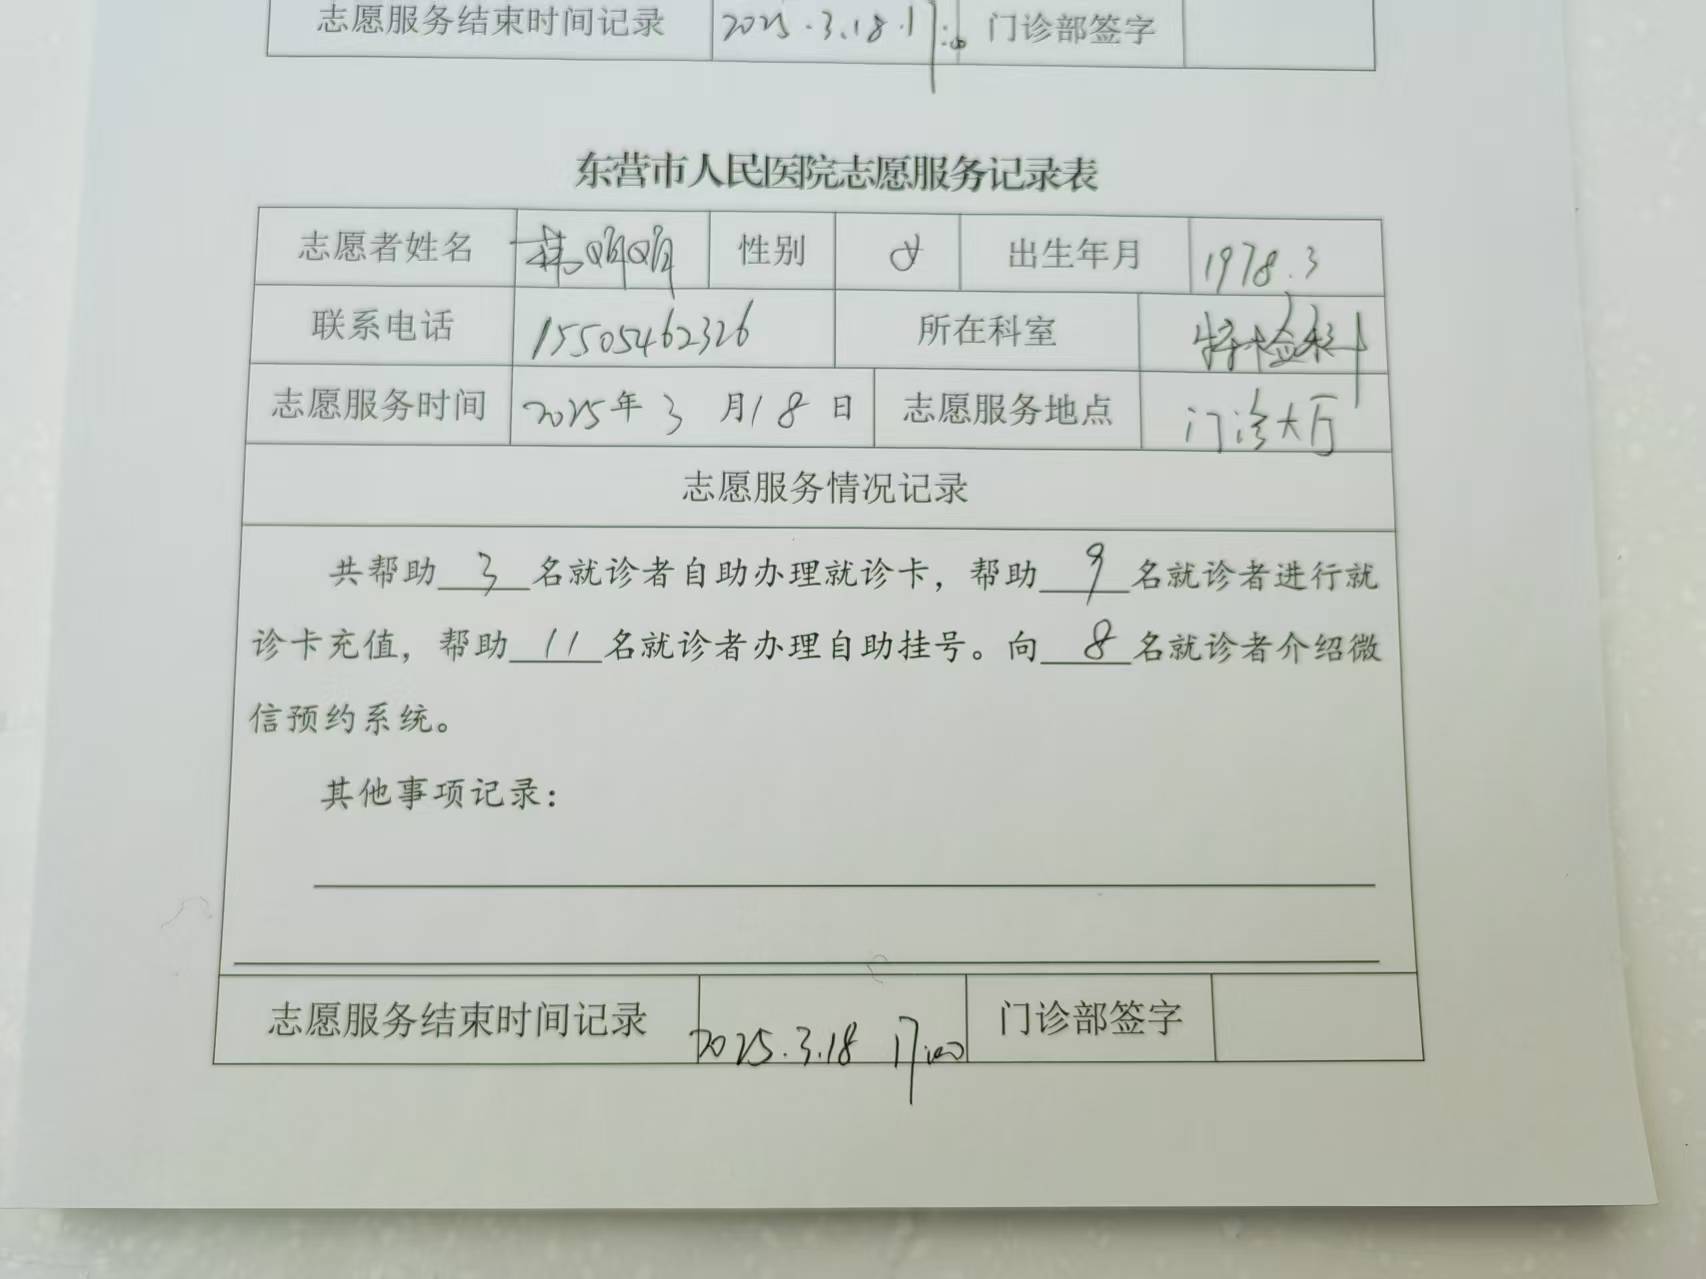 志愿服务结束时间记录 2025.3.18.17:00 门诊部签字
东营市人民医院志愿服务记录表
志愿者姓名 性别 女 出生年月 1978.3
联系电话 15505462326 所在科室 特检科
志愿服务时间 2025年3月18日 志愿服务地点 门诊大厅
志愿服务情况记录
共帮助 3 名就诊者自助办理就诊卡，帮助 9 名就诊者进行就
诊卡充值，帮助 11 名就诊者办理自助挂号。向 8 名就诊者介绍微
信预约系统。
其他事项记录：
志愿服务结束时间记录 2025.3.18 17:00 门诊部签字